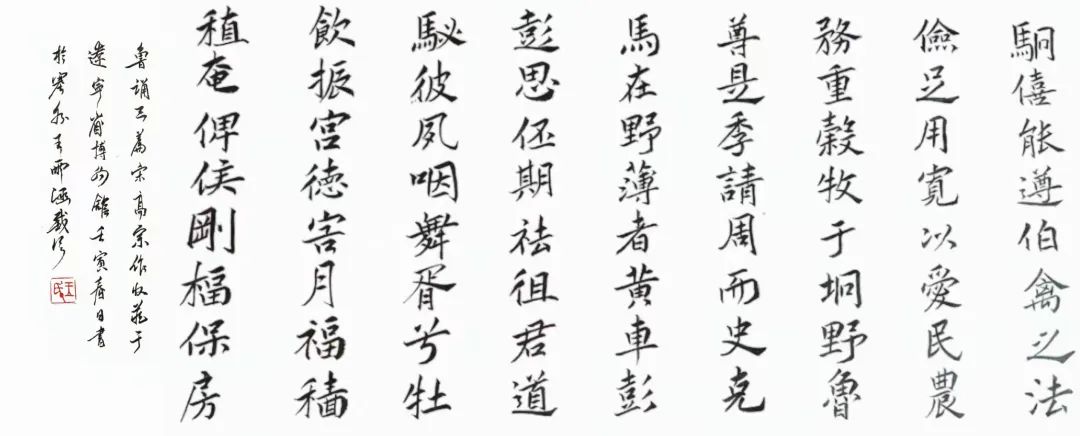 駉僖能遵伯禽之法
儉足用寛以愛民農
務重穀牧于坰野魯
尊是季請周而史克
馬在野薄者黄車彭
彭思伾期祛徂君道
駜彼夙咽舞胥兮牡
飲振宫德害月福穑
稙奄俾侯剛楅保房
魯誦三篇宋高宗作收藏于
遼寧省博物館壬寅春日書
於